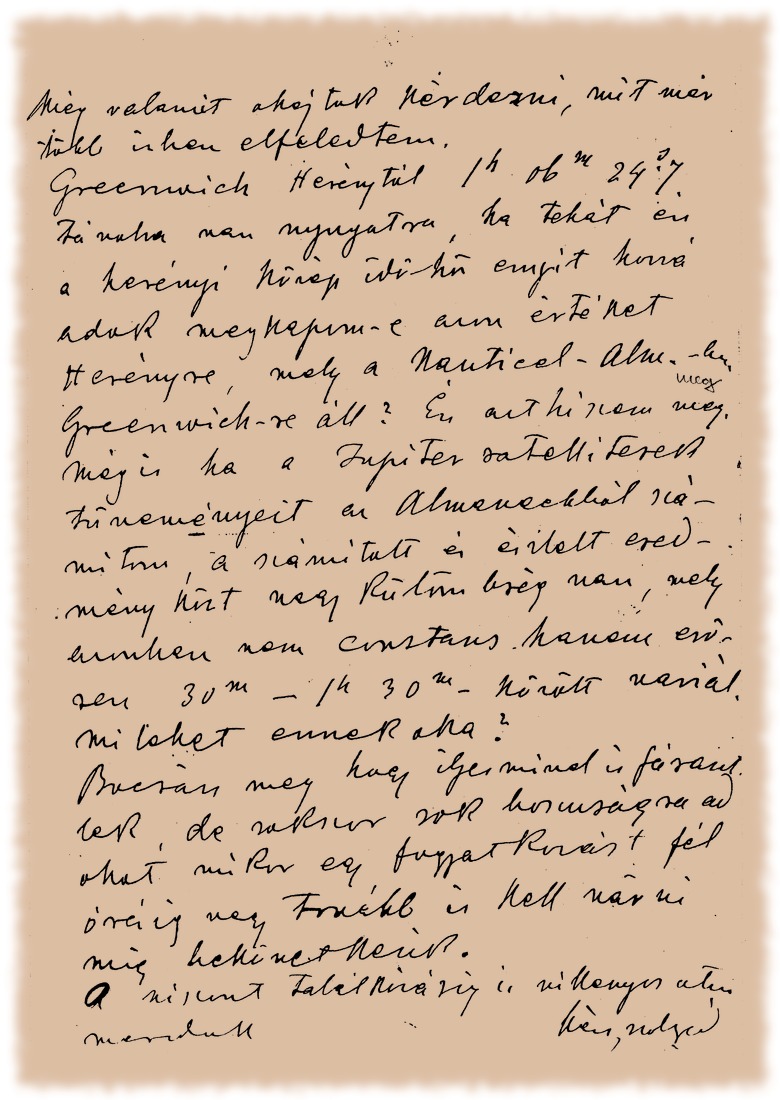 Még valamit akartok kérdezni, mit már
több ízben elfeledtem.
Greenwich Herénytől 1h 06m 24s.7
távolra van nyugatra, ha tehát én
a herényi közép idő-hő ennyit hozzá
adok megkapom-e azon értéket
Herényre, mely a Nautical-Alm.-ban
Greenwich-re áll? Én azt hiszem meg
meg.
mégis ha a Jupiter satelliterek
tüneményeit az Almanachból szá-
mitom, a számitott és észlelt ered-
mény közt nagy külömbség van, mely
azonban nem constans hanem erő-
sen 30m – 1h 30m – között variál.
mi lehet ennek oka?
Bocsáss meg hogy ilyesmivel is fáraszt
lek, de sokszor sok bosszúságra ad
okot mikor egy fogyatkozást fél
óráig vagy tovább is kell várni
míg bekövetkezik.
A viszont találkozásig is vagyok
maradok